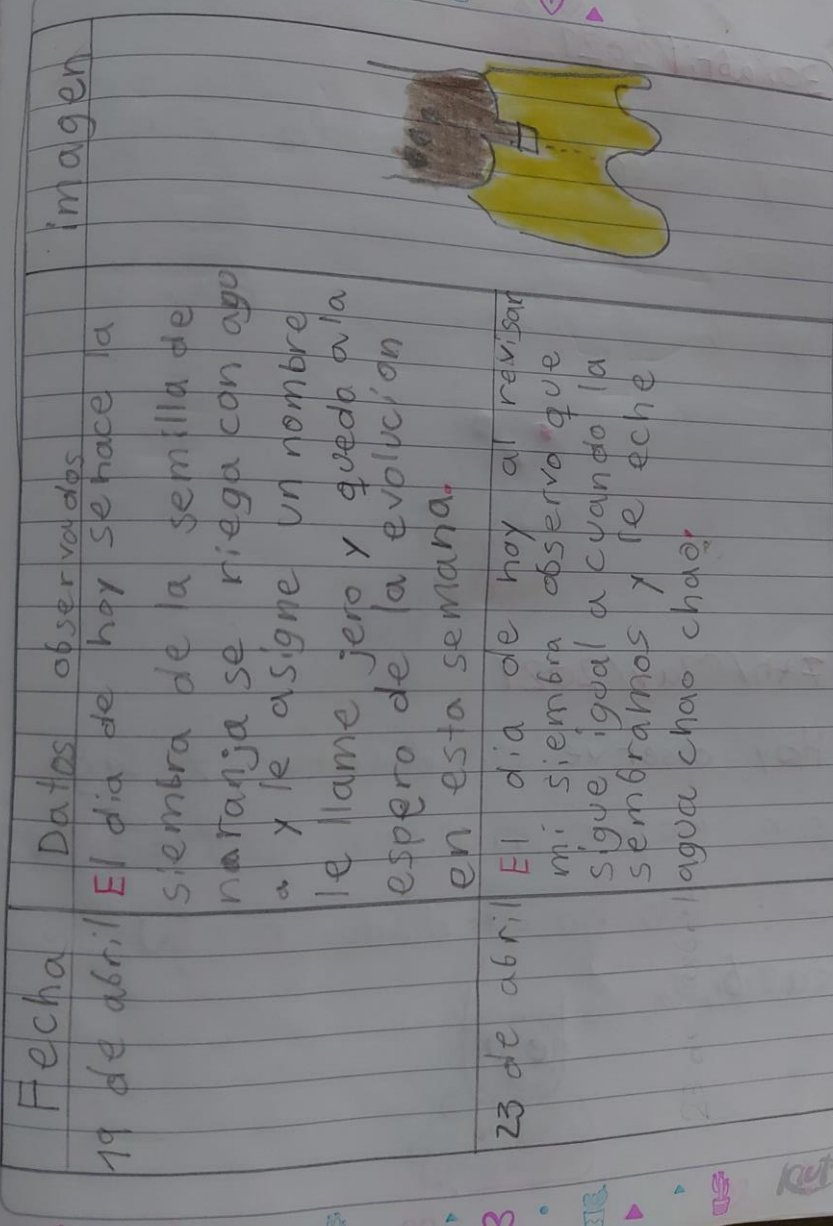 Fecha
Datos observados
imagen
19 de abril
El dia de hoy se hace la
siembra de la semilla de
naranja se riega con agu
a y le asigne un nombre
le llame jero y queda a la
espera de la evolucion
en esta semana.
23 de abril
El dia de hoy al revisar
mi siembra observo que
sigue igual a cuando la
sembramos y le eche
agua chao chao.